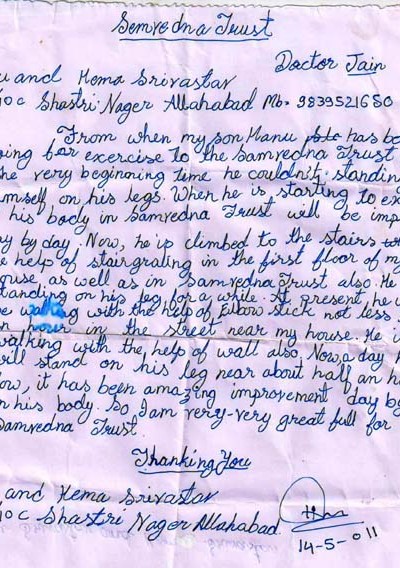 Samvedna Trust
Doctor Jain
u and Hema Srivastav
10c Shastri Nager Allahabad Mb. 9839521680
From when my son Manu has be
oing for exercise to the Samvedna Trust
he very beginning time he couldn't standin
imself on his legs. When he is starting to ex
his body in Samvedna Trust will be imp
ay by day. Now, he is climbed to the stairs
e help of stairgrating in the first floor of my
ouse, as well as in Samvedna Trust also. He
tanding on his leg for a while. At present, he
walking with the help of Elbow stick not less
n hours in the street near my house. He i
walking with the help of wall also. Now, a day h
ill stand on his leg near about half an h
ow, it has been amazing improvement day by
n his body. So I am very-very great full for
Samvedna Trust.
Thanking You
and Hema Srivastav
10c Shastri Nager Allahabad.
14-5-011